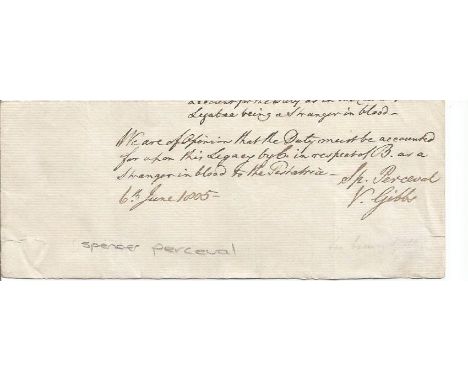 Legatee being a Stranger in blood—
We are of Opinion that the Duty must be accounted
for upon this Legacy by C. in respect of B. as a
Stranger in blood to the Testatrix— Sp. Perceval
6th June 1805— V. Gibbs
spencer perceval